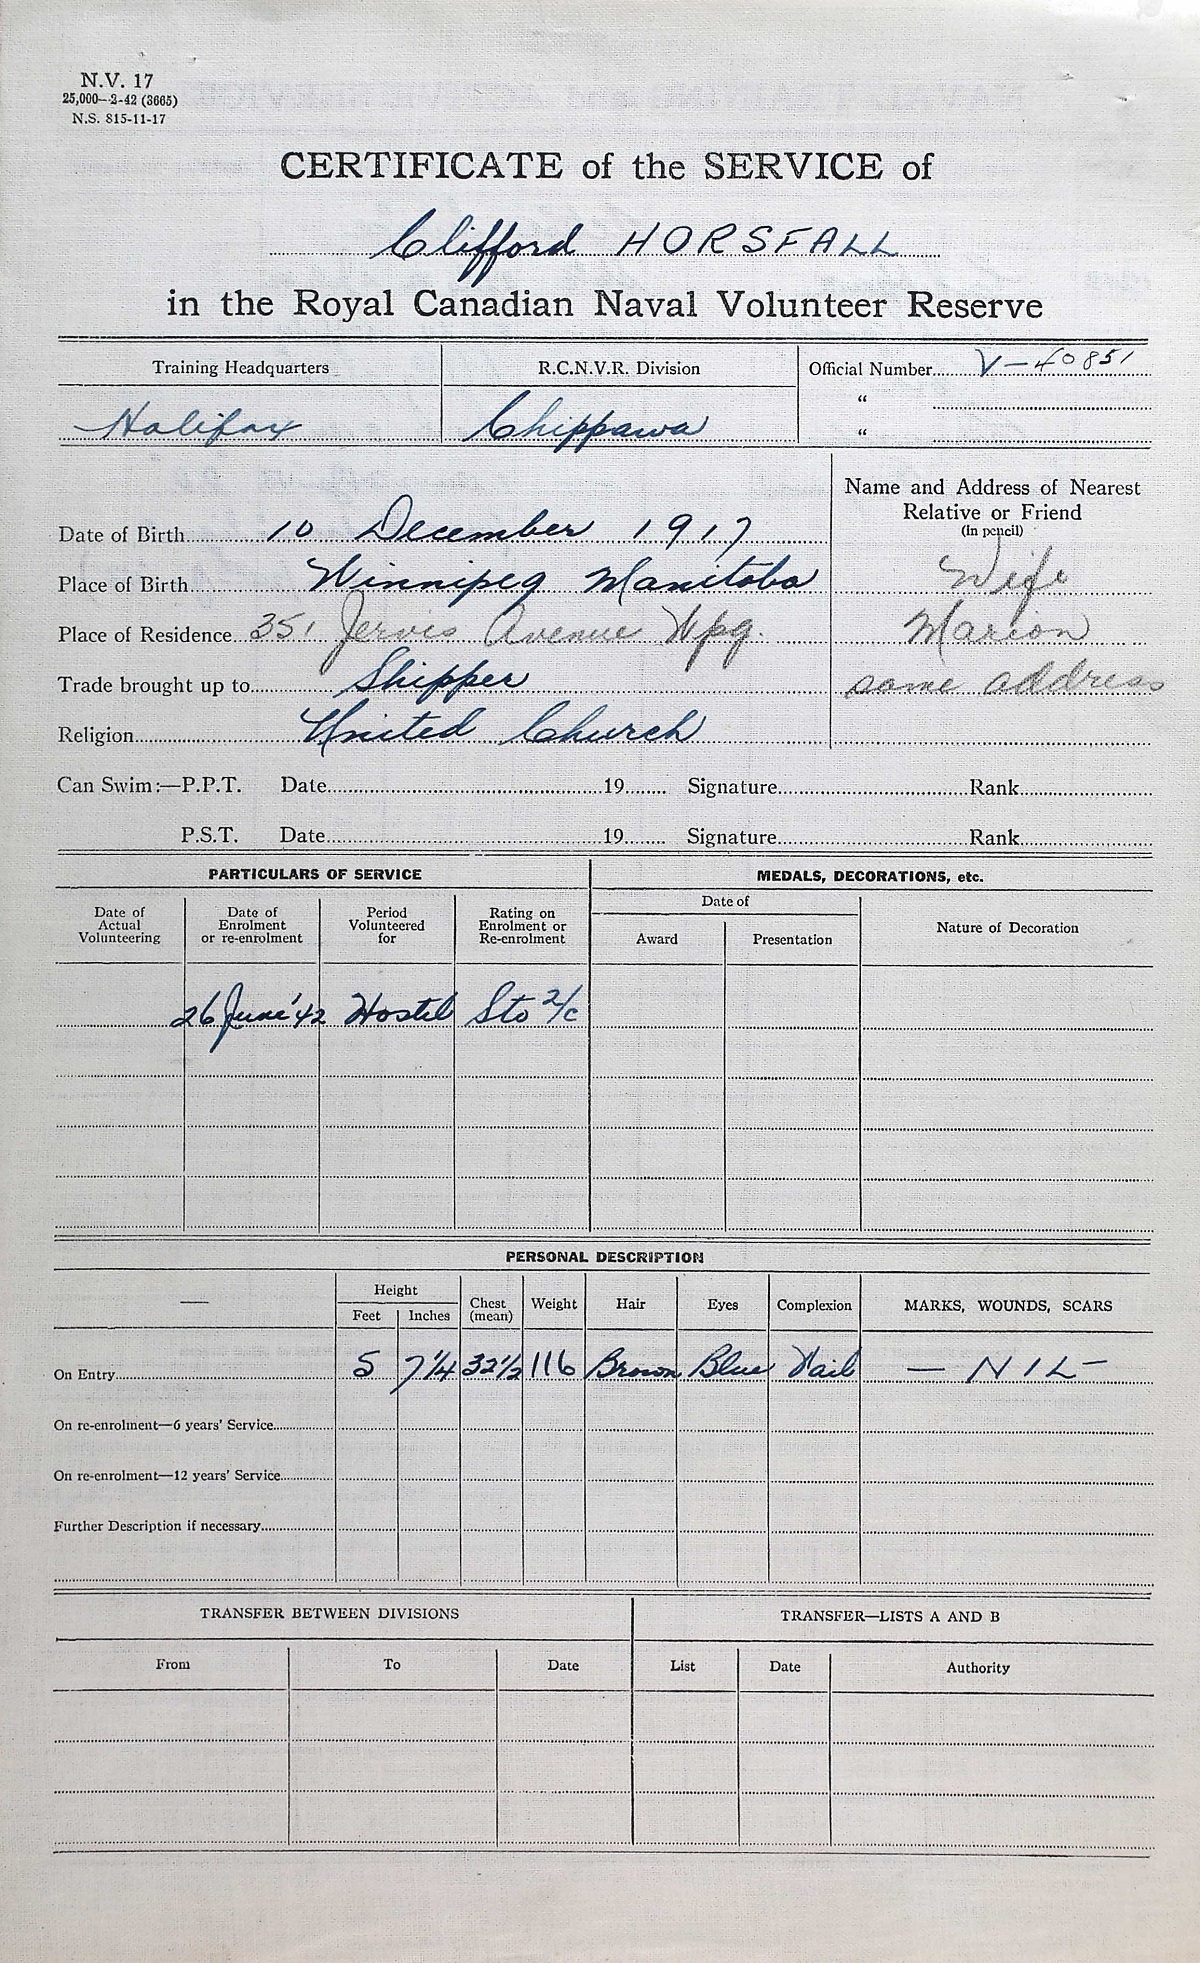 N.V. 17
25,000—2-42 (3665)
N.S. 815-11-17
CERTIFICATE of the SERVICE of
Clifford HORSFALL
in the Royal Canadian Naval Volunteer Reserve
Training Headquarters R.C.N.V.R. Division Official Number V-40851
Halifax Chippawa "
"
Name and Address of Nearest Relative or Friend
(In pencil)
Date of Birth 10 December 1917
Wife
Place of Birth Winnipeg Manitoba
Marion
Place of Residence 351 Jervis Avenue Wpg.
same address
Trade brought up to Shipper
Religion United Church
Can Swim:—P.P.T. Date 19 Signature Rank
P.S.T. Date 19 Signature Rank
PARTICULARS OF SERVICE MEDALS, DECORATIONS, etc.
Date of Actual Volunteering Date of Enrolment or re-enrolment Period Volunteered for Rating on Enrolment or Re-enrolment Date of Nature of Decoration
Award Presentation
26 June '42 Hostil Sto 2/c
PERSONAL DESCRIPTION
— Height Chest (mean) Weight Hair Eyes Complexion MARKS, WOUNDS, SCARS
Feet Inches
On Entry 5 7 1/4 32 1/2 116 Brown Blue — NIL —
On re-enrolment—6 years' Service
On re-enrolment—12 years' Service
Further Description if necessary
TRANSFER BETWEEN DIVISIONS TRANSFER—LISTS A AND B
From To Date List Date Authority